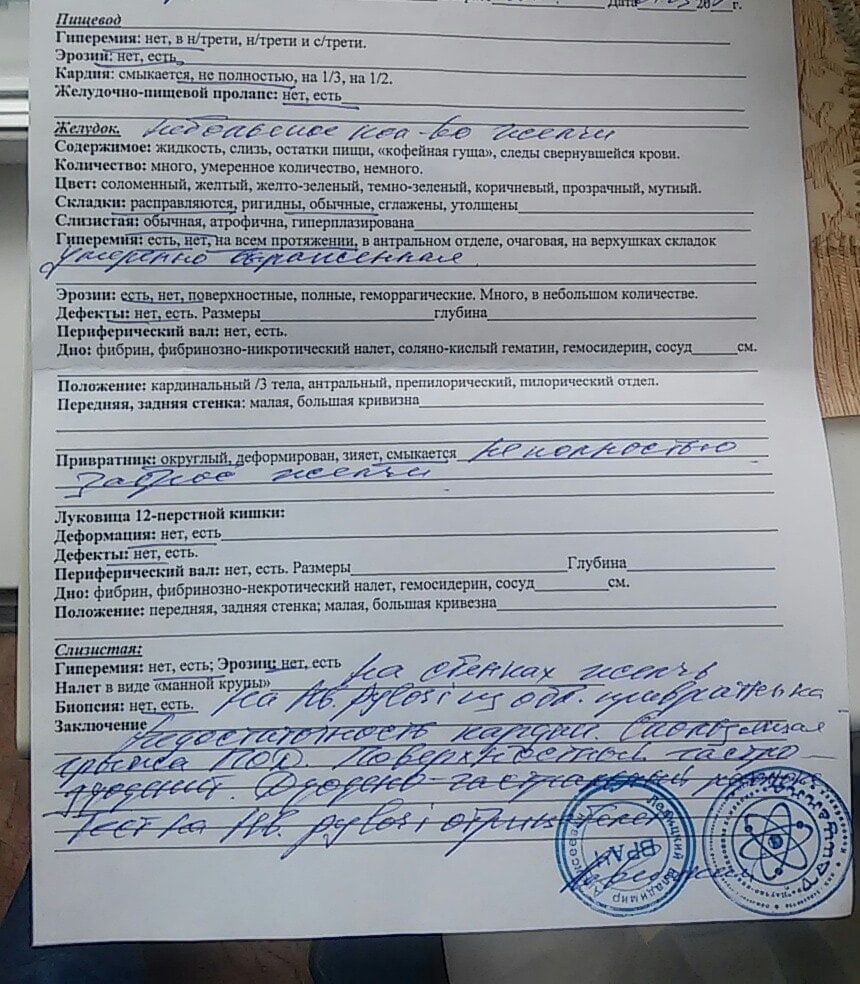 Дата
200 г.
Пищевод
Гиперемия: нет, в н/трети, н/трети и с/трети.
Эрозии: нет, есть
Кардия: смыкается, не полностью, на 1/3, на 1/2.
Желудочно-пищевой пролапс: нет, есть
Желудок. небольшое кол-во желчи
Содержимое: жидкость, слизь, остатки пищи, «кофейная гуща», следы свернувшейся крови.
Количество: много, умеренное количество, немного.
Цвет: соломенный, желтый, желто-зеленый, темно-зеленый, коричневый, прозрачный, мутный.
Складки: расправляются, ригидны, обычные, сглажены, утолщены
Слизистая: обычная, атрофична, гиперплазирована
Гиперемия: есть, нет, на всем протяжении, в антральном отделе, очаговая, на верхушках складок
умеренно выраженная
Эрозии: есть, нет, поверхностные, полные, геморрагические. Много, в небольшом количестве.
Дефекты: нет, есть. Размеры глубина
Периферический вал: нет, есть.
Дно: фибрин, фибринозно-никротический налет, соляно-кислый гематин, гемосидерин, сосуд см.
Положение: кардинальный /3 тела, антральный, препилорический, пилорический отдел.
Передняя, задняя стенка: малая, большая кривизна
Привратник: округлый, деформирован, зияет, смыкается не полностью
заброс желчи
Луковица 12-перстной кишки:
Деформация: нет, есть
Дефекты: нет, есть.
Периферический вал: нет, есть. Размеры Глубина
Дно: фибрин, фибринозно-некротический налет, гемосидерин, сосуд см.
Положение: передняя, задняя стенка; малая, большая кривезна
Слизистая:
Гиперемия: нет, есть; Эрозии: нет, есть на стенках желчь
Налет в виде «манной крупы»
Биопсия: нет, есть. на Hb. pylori из обл. привратника
Заключение Недостаточность кардии. Скользящая
грыжа ПОД. Поверхностный гастро-
дуоденит. Дуодено-гастральный рефлюкс
Тест на Hb. pylori отрицателен
ВРАЧ
Владимир Алексеевич